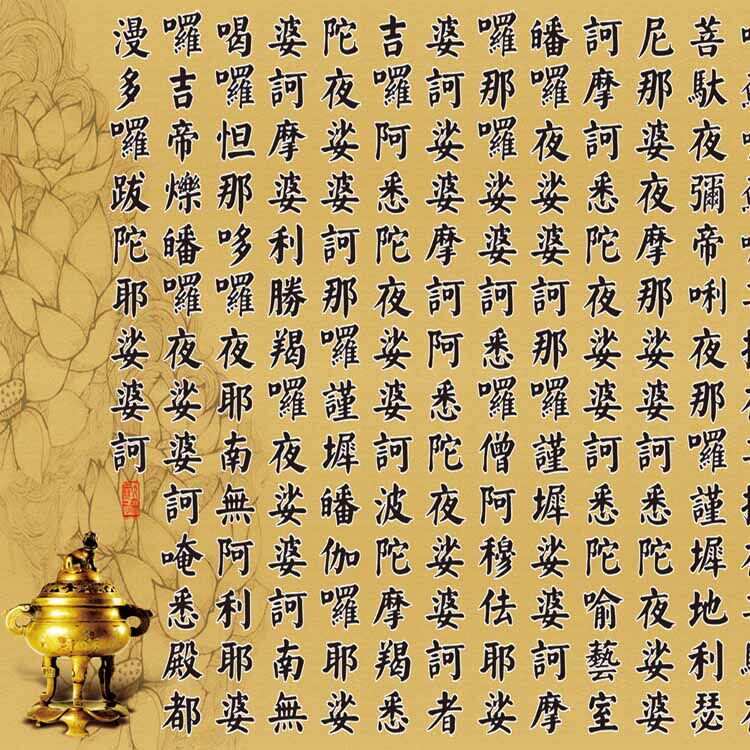 菩馱夜彌帝唎夜那囉謹墀地利瑟
尼那婆夜摩那娑婆訶悉陀夜娑婆
訶摩訶悉陀夜娑婆訶悉陀喻藝室
皤囉夜娑婆訶那囉謹墀娑婆訶摩
囉那囉娑婆訶悉囉僧阿穆佉耶娑
婆訶娑婆摩訶阿悉陀夜娑婆訶者
吉囉阿悉陀夜娑婆訶波陀摩羯悉
陀夜娑婆訶那囉謹墀皤伽囉耶娑
婆訶摩婆利勝羯囉夜娑婆訶南無
喝囉怛那哆囉夜耶南無阿利耶婆
囉吉帝爍皤囉夜娑婆訶唵悉殿都
漫多囉跋陀耶娑婆訶